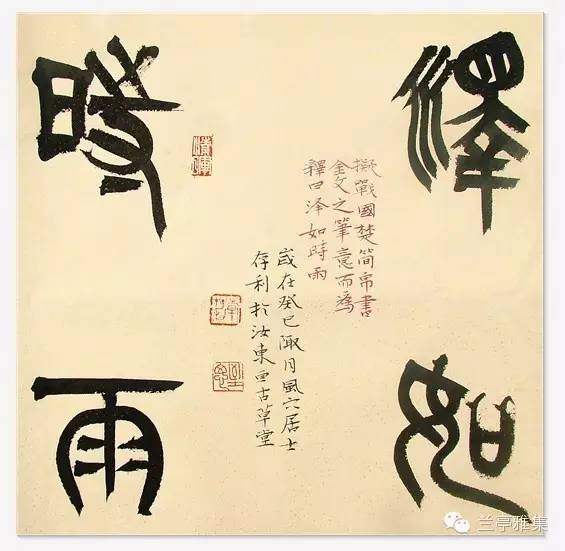 澤如
時雨
擬戰國楚简帛書
金文之筆意而為
釋曰泽如時雨
歲在癸巳陬月風六居士
存利於汝東西古草堂
兰亭雅集